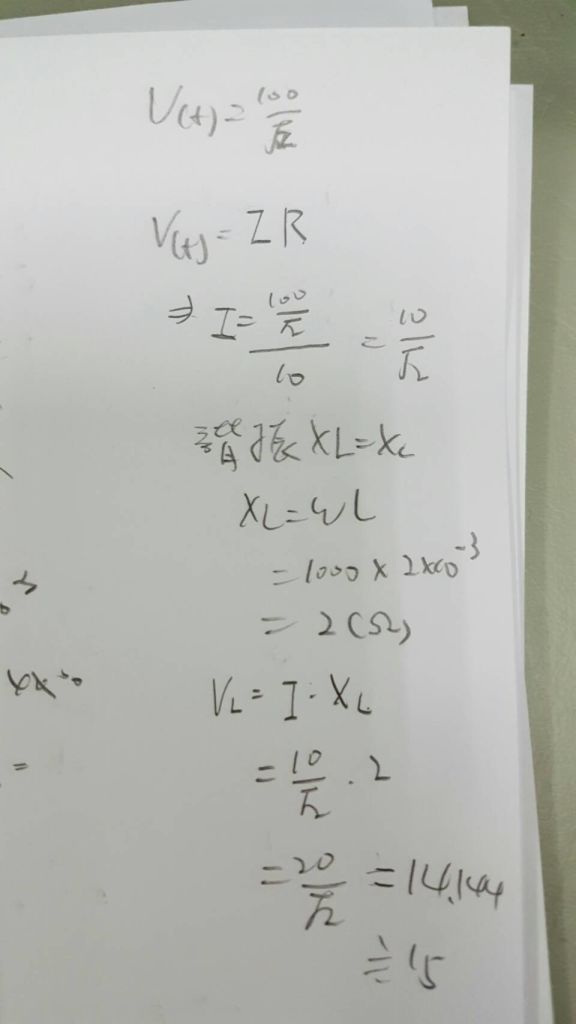 V(t) = 100/√2
V(t) = IR
⇒ I = (100/√2)/10 = 10/√2
諧振 XL = XC
XL = ωL
= 1000 × 2×10⁻³
= 2(Ω)
VL = I · XL
= 10/√2 · 2
= 20/√2 ≒ 14.144
≒ 15